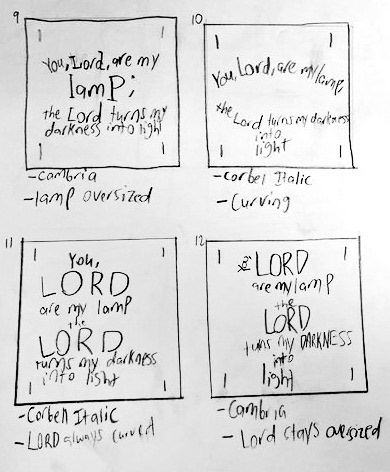 9
You, Lord, are my
lamp;
the Lord turns my
darkness into light
-Cambria
-lamp oversized
10
You, Lord, are my lamp,
the Lord turns my darkness
into
light
-Corbel Italic
-Curving
11
You,
LORD
are my lamp
the
LORD
turns my darkness
into light
-Corbell Italic
-LORD always curved
12
LORD
are my lamp
the
LORD
turns my DARKNESS
into
light
-Cambria
- Lord stays oversized